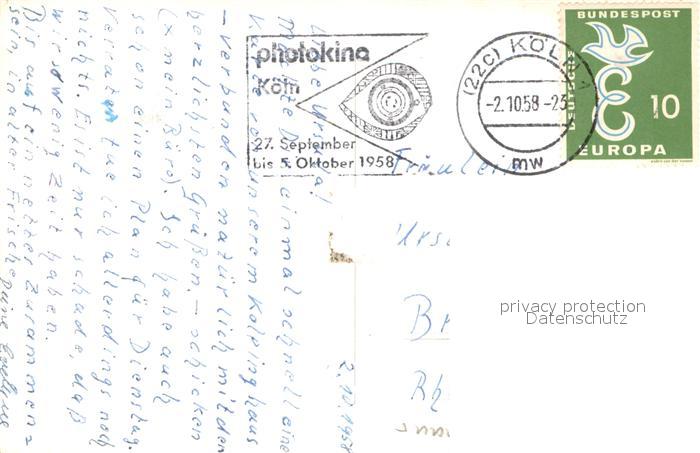 photokina
Köln
27. September
bis 5. Oktober 1958
(22c) KÖLN
-2.10.58 -23
mw
BUNDESPOST
DEUTSCHE
10
EUROPA
2.10.1958
Liebe Ursula!
Möchte Dir einmal schnell eine
Karte von unserem Kolpinghaus
– verbunden natürlich mit den
herzlichsten Grüßen, – schicken
(x nen Büro). Ich habe auch
schon einen Plan für Dienstag.
Verraten tue ich allerdings noch
nichts. Es ist nur schade, daß
wir so wenig Zeit haben.
Bis auf ein nettes Zusammen=
sein, in alter Frische
Fräulein
Urs
B
Rh
privacy protection
Datenschutz